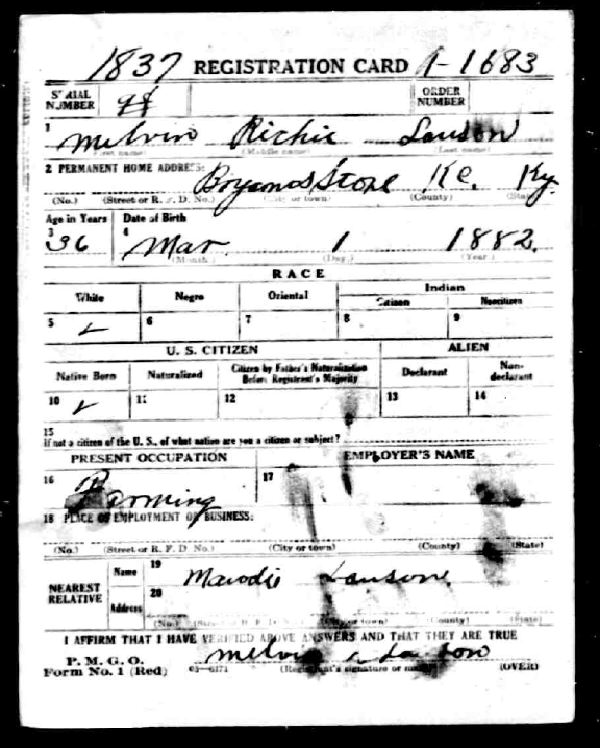 1837 REGISTRATION CARD 1-1683
SERIAL NUMBER ORDER NUMBER
1 Melvin Richie Lawson
(First name) (Middle name) (Last name)
2 PERMANENT HOME ADDRESS:
Bryants Store Ky.
(No.) (Street or R. F. D. No.) (City or town) (County) (State)
Age in Years Date of Birth
3 4
36 Mar. 1 1882.
(Month) (Day) (Year)
RACE
White Negro Oriental Indian
Citizen Noncitizen
5 6 7 8 9
U. S. CITIZEN ALIEN
Native Born Naturalized Citizen by Father's Naturalization Before Registrant's Majority Declarant Non-declarant
10 11 12 13 14
15
If not a citizen of the U. S., of what nation are you a citizen or subject?
PRESENT OCCUPATION EMPLOYER'S NAME
16 Farming 17
18 PLACE OF EMPLOYMENT OR BUSINESS:
(No.) (Street or R. F. D. No.) (City or town) (County) (State)
NEAREST RELATIVE Name 19 Lawson
Address 20
(No.) (Street or R. F. D. No.) (City or town) (County) (State)
I AFFIRM THAT I HAVE VERIFIED ABOVE ANSWERS AND THAT THEY ARE TRUE
P. M. G. O.
Form No. 1 (Red) 03-6171 Melvin Lawson
(Registrant's signature or mark) (OVER)